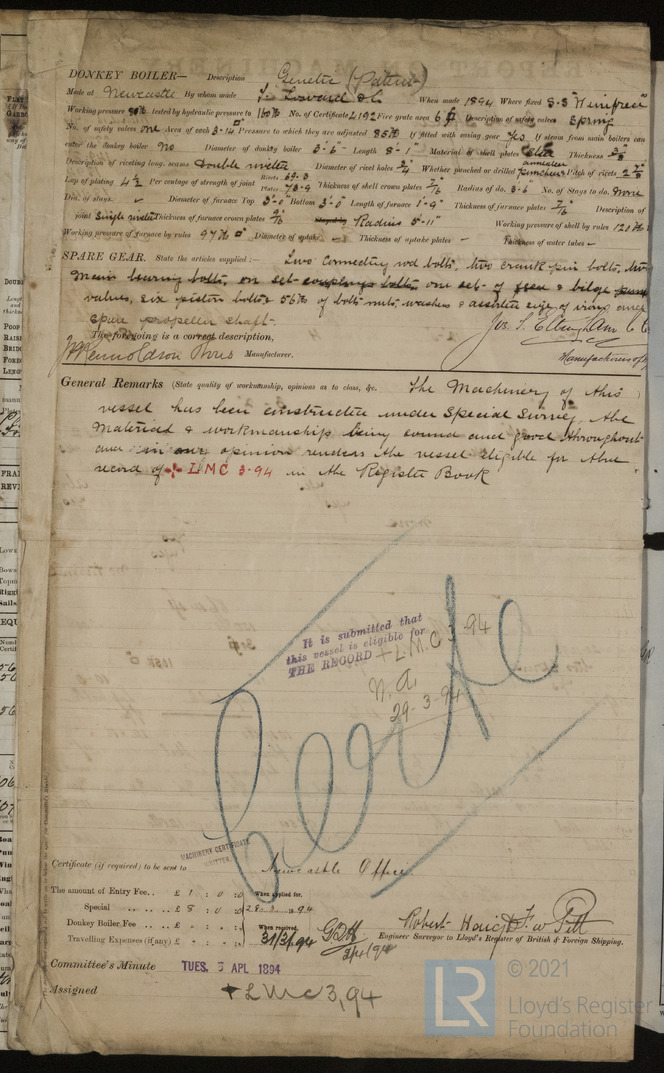 DONKEY BOILER— Description
Made at Newcastle By whom made When made 1894 Where fixed
Working pressure 80 lb tested by hydraulic pressure to 160 lb No. of Certificate 4192 Fire grate area 6 Description of safety valves Spring
No. of safety valves one Area of each 3.14 Pressure to which they are adjusted 85 lb If fitted with easing gear Yes If steam from main boilers can
enter the donkey boiler No Diameter of donkey boiler 3'-6" Length 8'-1" Material of shell plates Steel Thickness
Description of riveting long. seams Double riveted Diameter of rivet holes 3/4 Whether punched or drilled punched Pitch of rivets
Lap of plating 4 1/2 Per centage of strength of joint Rivets Plates 73.9 Thickness of shell crown plates Radius of do. 3'-6 No. of Stays to do. None
Dia. of stays. – Diameter of furnace Top 3'-0" Bottom 3'-0" Length of furnace Thickness of furnace plates Description of
joint Single riveted Thickness of furnace crown plates Radius 5'-11" Working pressure of shell by rules
Working pressure of furnace by rules 97 lb Diameter of uptake – Thickness of uptake plates – Thickness of water tubes –
SPARE GEAR. State the articles supplied :— Two Connecting rod bolts, two crank pin bolts, two
main bearing bolts, one set couplings bolts, one set of feed & bilge pump
valves, six piston bolts & 56 lb of bolts nuts, washers & assorted size of iron one
spare propeller shaft.
The foregoing is a correct description,
Manufacturer.
General Remarks (State quality of workmanship, opinions as to class, &c. The Machinery of this
vessel has been constructed under Special Survey, the
Materials & workmanship being sound and good throughout
and in our opinion renders the vessel eligible for the
record of + LMC 3.94 in the Register Book
It is submitted that
this vessel is eligible for
THE RECORD + L.M.C 3 94
29-3-94
MACHINERY CERTIFICATE
WRITTEN
Certificate (if required) to be sent to Newcastle Office
The amount of Entry Fee.. £ 1 : 0 : 0 When applied for.
Special £ 8 : 0 : 0 28.3.1894
Donkey Boiler Fee £ When received.
Travelling Expenses (if any) £ 31/3/94
Robert Haigh F. W. Pitt
Engineer Surveyor to Lloyd's Register of British & Foreign Shipping.
Committee's Minute TUES. 3 APL 1894
Assigned + LMC 3,94
LR © 2021
Lloyd's Register
Foundation